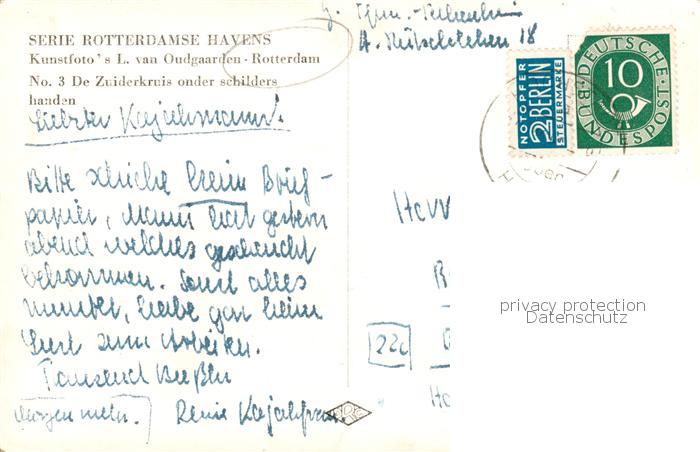 SERIE ROTTERDAMSE HAVENS
Kunstfoto's L. van Oudgaarden - Rotterdam
No. 3 De Zuiderkruis onder schilders
handen
Liebster Kajakmann!
Bitte schicke kein Brief-
papier, Mami hat gestern
abend welches geschenkt
bekommen. Sonst alles
munter, habe gar keine
Lust zum Arbeiten.
Tausend Bußln
Morgen mehr.
Deine Kajakfrau.
18
NOTOPFER
2 BERLIN
STEUERMARKE
DEUTSCHE
BUNDESPOST
10
Herr
22c
privacy protection
Datenschutz